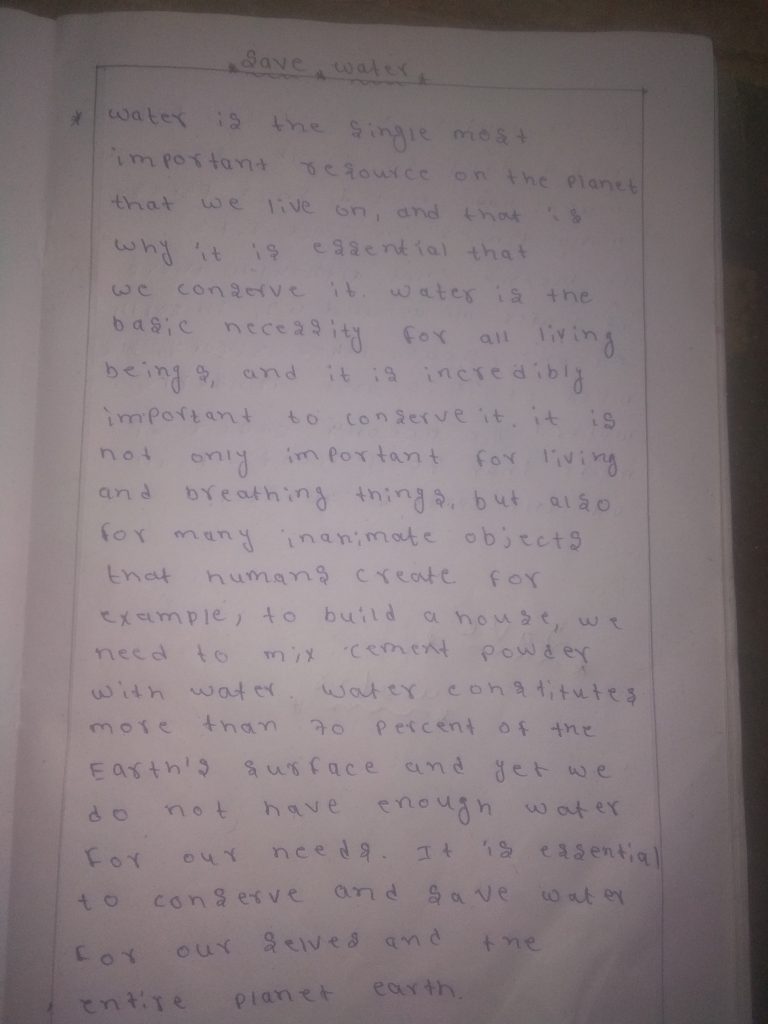 Save water
* water is the single most
important resource on the planet
that we live on, and that is
why it is essential that
we conserve it. water is the
basic necessity for all living
beings, and it is incredibly
important to conserve it. it is
not only important for living
and breathing things, but also
for many inanimate objects
that humans create for
example, to build a house, we
need to mix cement powder
with water. water constitutes
more than 70 percent of the
Earth's surface and yet we
do not have enough water
for our needs. It is essential
to conserve and save water
for our selves and the
entire planet earth.